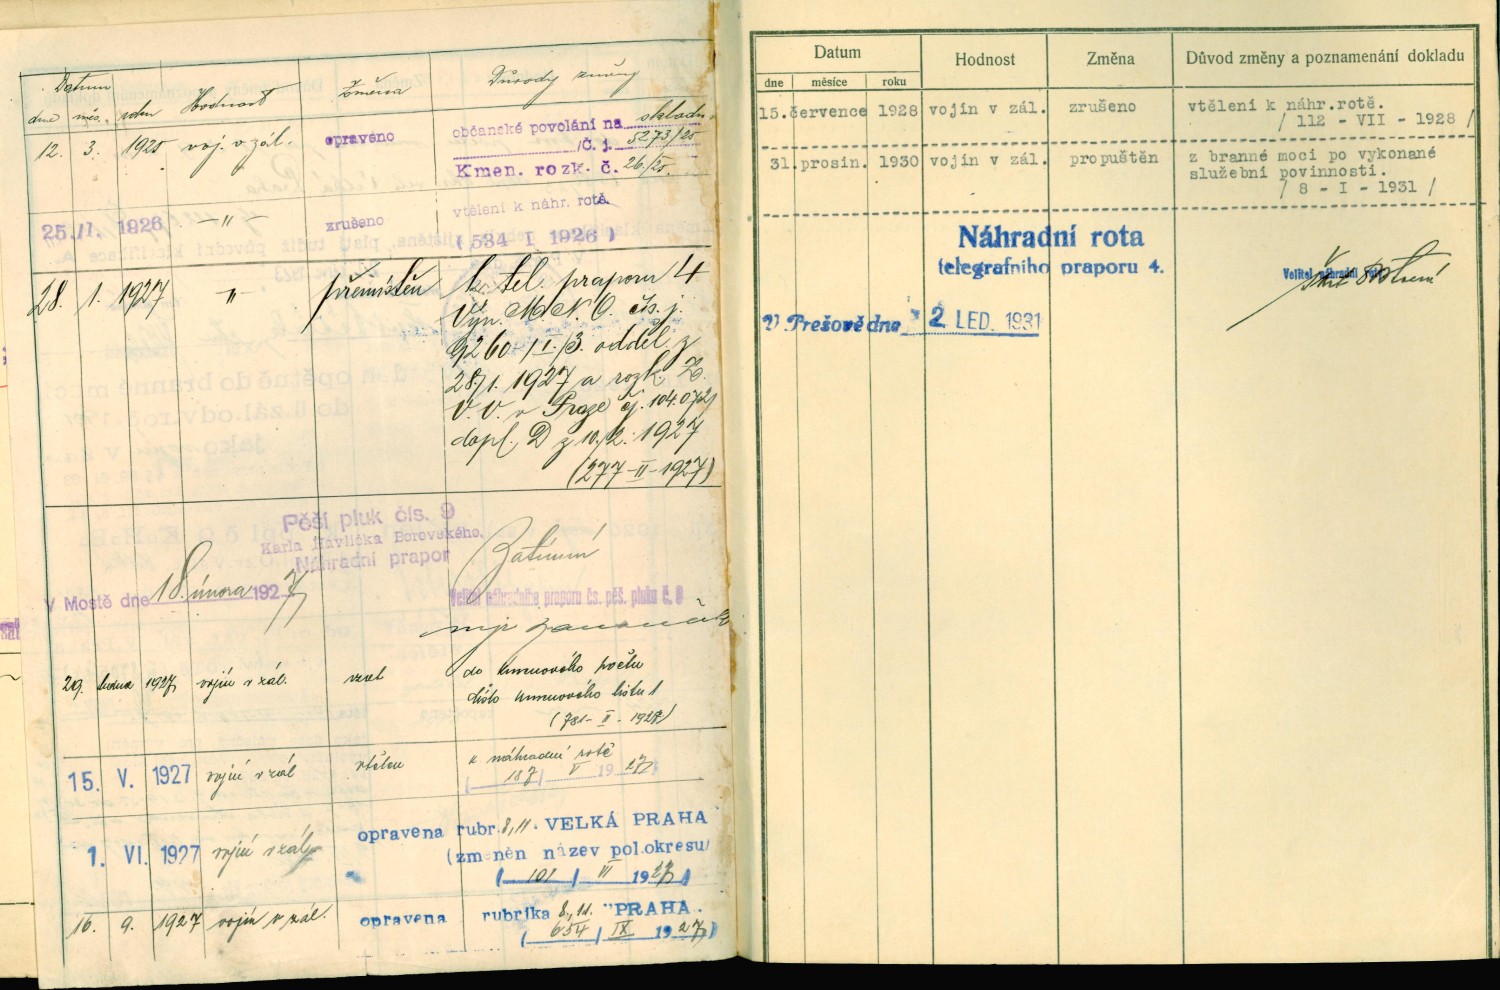 Datum
Hodnost
Změna
Důvody změny
dne
měs.
roku
12. 3. 1925 voj. v zál.
opraveno
občanské povolání na skladn.
/Č. j. 5273/25
Kmen. rozk. č. 26/25.
25./I. 1926 —"—
zrušeno
vtělení k náhr. rotě.
(534 I 1926)
28. 1. 1927 "
přemístěn
k tel. praporu 4
Výn. M.N.O. čs. j.
9260-/I./3. odděl. z
28./1. 1927 a rozk. Z.
V.V. v Praze čj. 104.072/
dopl. D z 10./2. 1927
(277-II-1927)
Pěší pluk čís. 9
Karla Havlíčka Borovského.
Náhradní prapor
V Mostě dne 18. února 1927
Zatímní
Velitel náhradního praporu čs. pěš. pluku č. 9
mjr
29. ledna 1927 vojín v zál.
vzat
do kmenového počtu
číslo kmenového listu 1
(781- II - 1927)
15. V. 1927 vojín v zál
vtělen
k náhradní rotě
( 187 / V 1927)
1. VI. 1927 vojín v zál
opravena rubr. 8, 11. VELKÁ PRAHA
(změněn název pol. okresu/
( 101 / VI 1927)
16. 9. 1927 vojín v zál.
opravena rubrika 8., 11. "PRAHA.
( 654 / IX 1927)
Datum
Hodnost
Změna
Důvod změny a poznamenání dokladu
dne
měsíce
roku
15. července 1928 vojín v zál. zrušeno
vtělení k náhr.rotě.
/ 112 - VII - 1928 /
31. prosin. 1930 vojín v zál. propuštěn
z branné moci po vykonané
služební povinnosti.
/ 8 - I - 1931 /
Náhradní rota
telegrafního praporu 4.
Velitel náhradní roty
V Prešově dne 2 LED. 1931